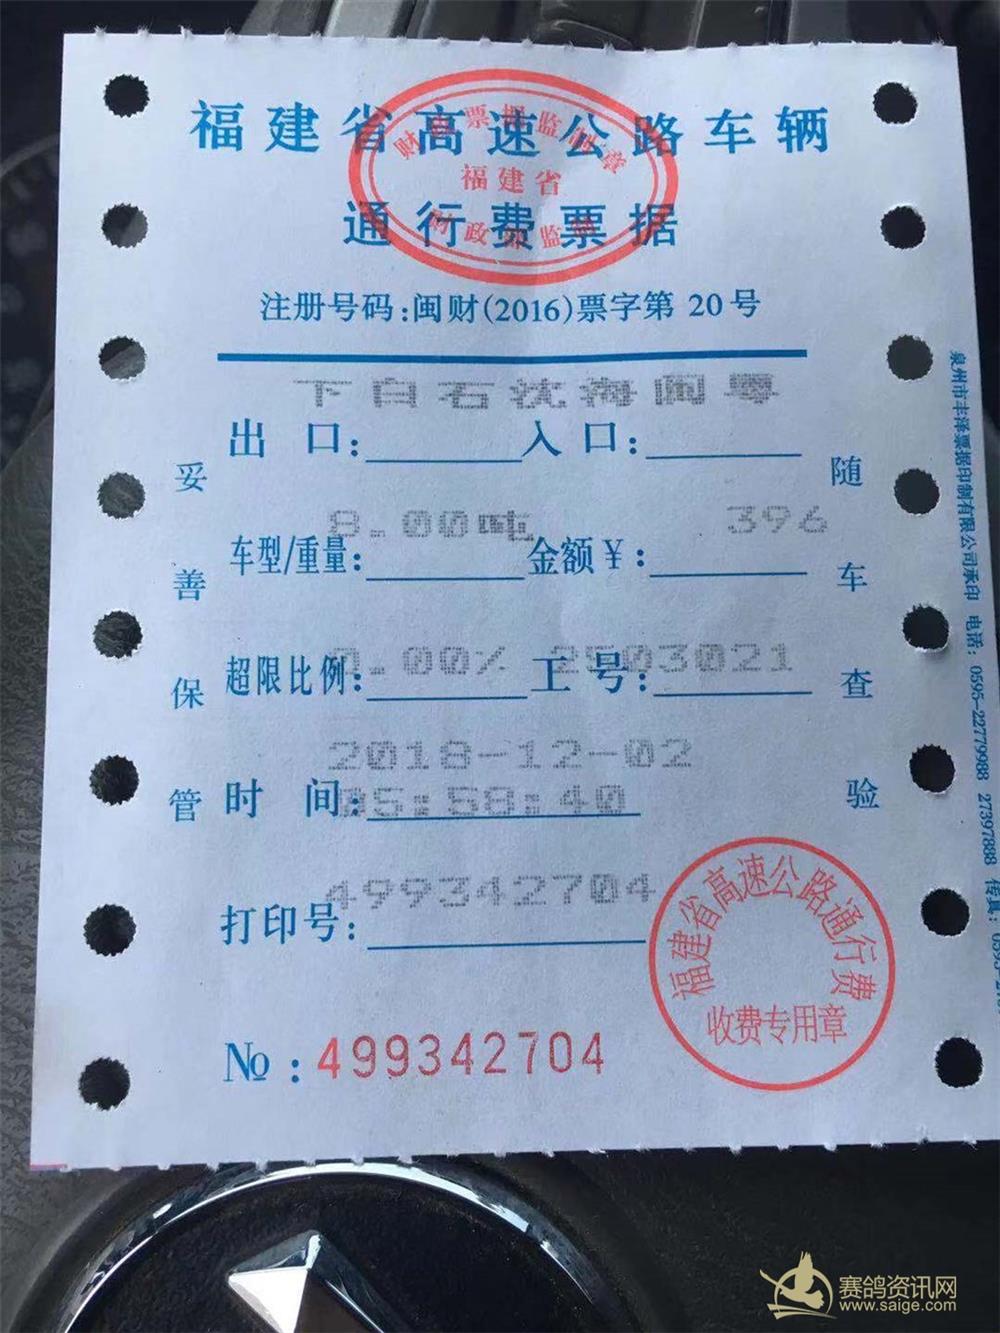 福建省高速公路车辆
通行费票据
财政票据监制章
福建省
财政厅监制
注册号码:闽财(2016)票字第 20号
下白石沈海闽粤
出 口: 入口:
8.00吨 396
车型/重量: 金额¥:
0.00% 2503021
超限比例: 工号:
2018-12-02
时 间: 05:58:40
499342704
打印号:
№: 499342704
妥善保管
随车查验
福建省高速公路通行费
收费专用章
泉州市丰泽票据印制有限公司承印 电话: 0595-22779988 27397888 传真: 0595-2
赛鸽资讯网
www.saige.com